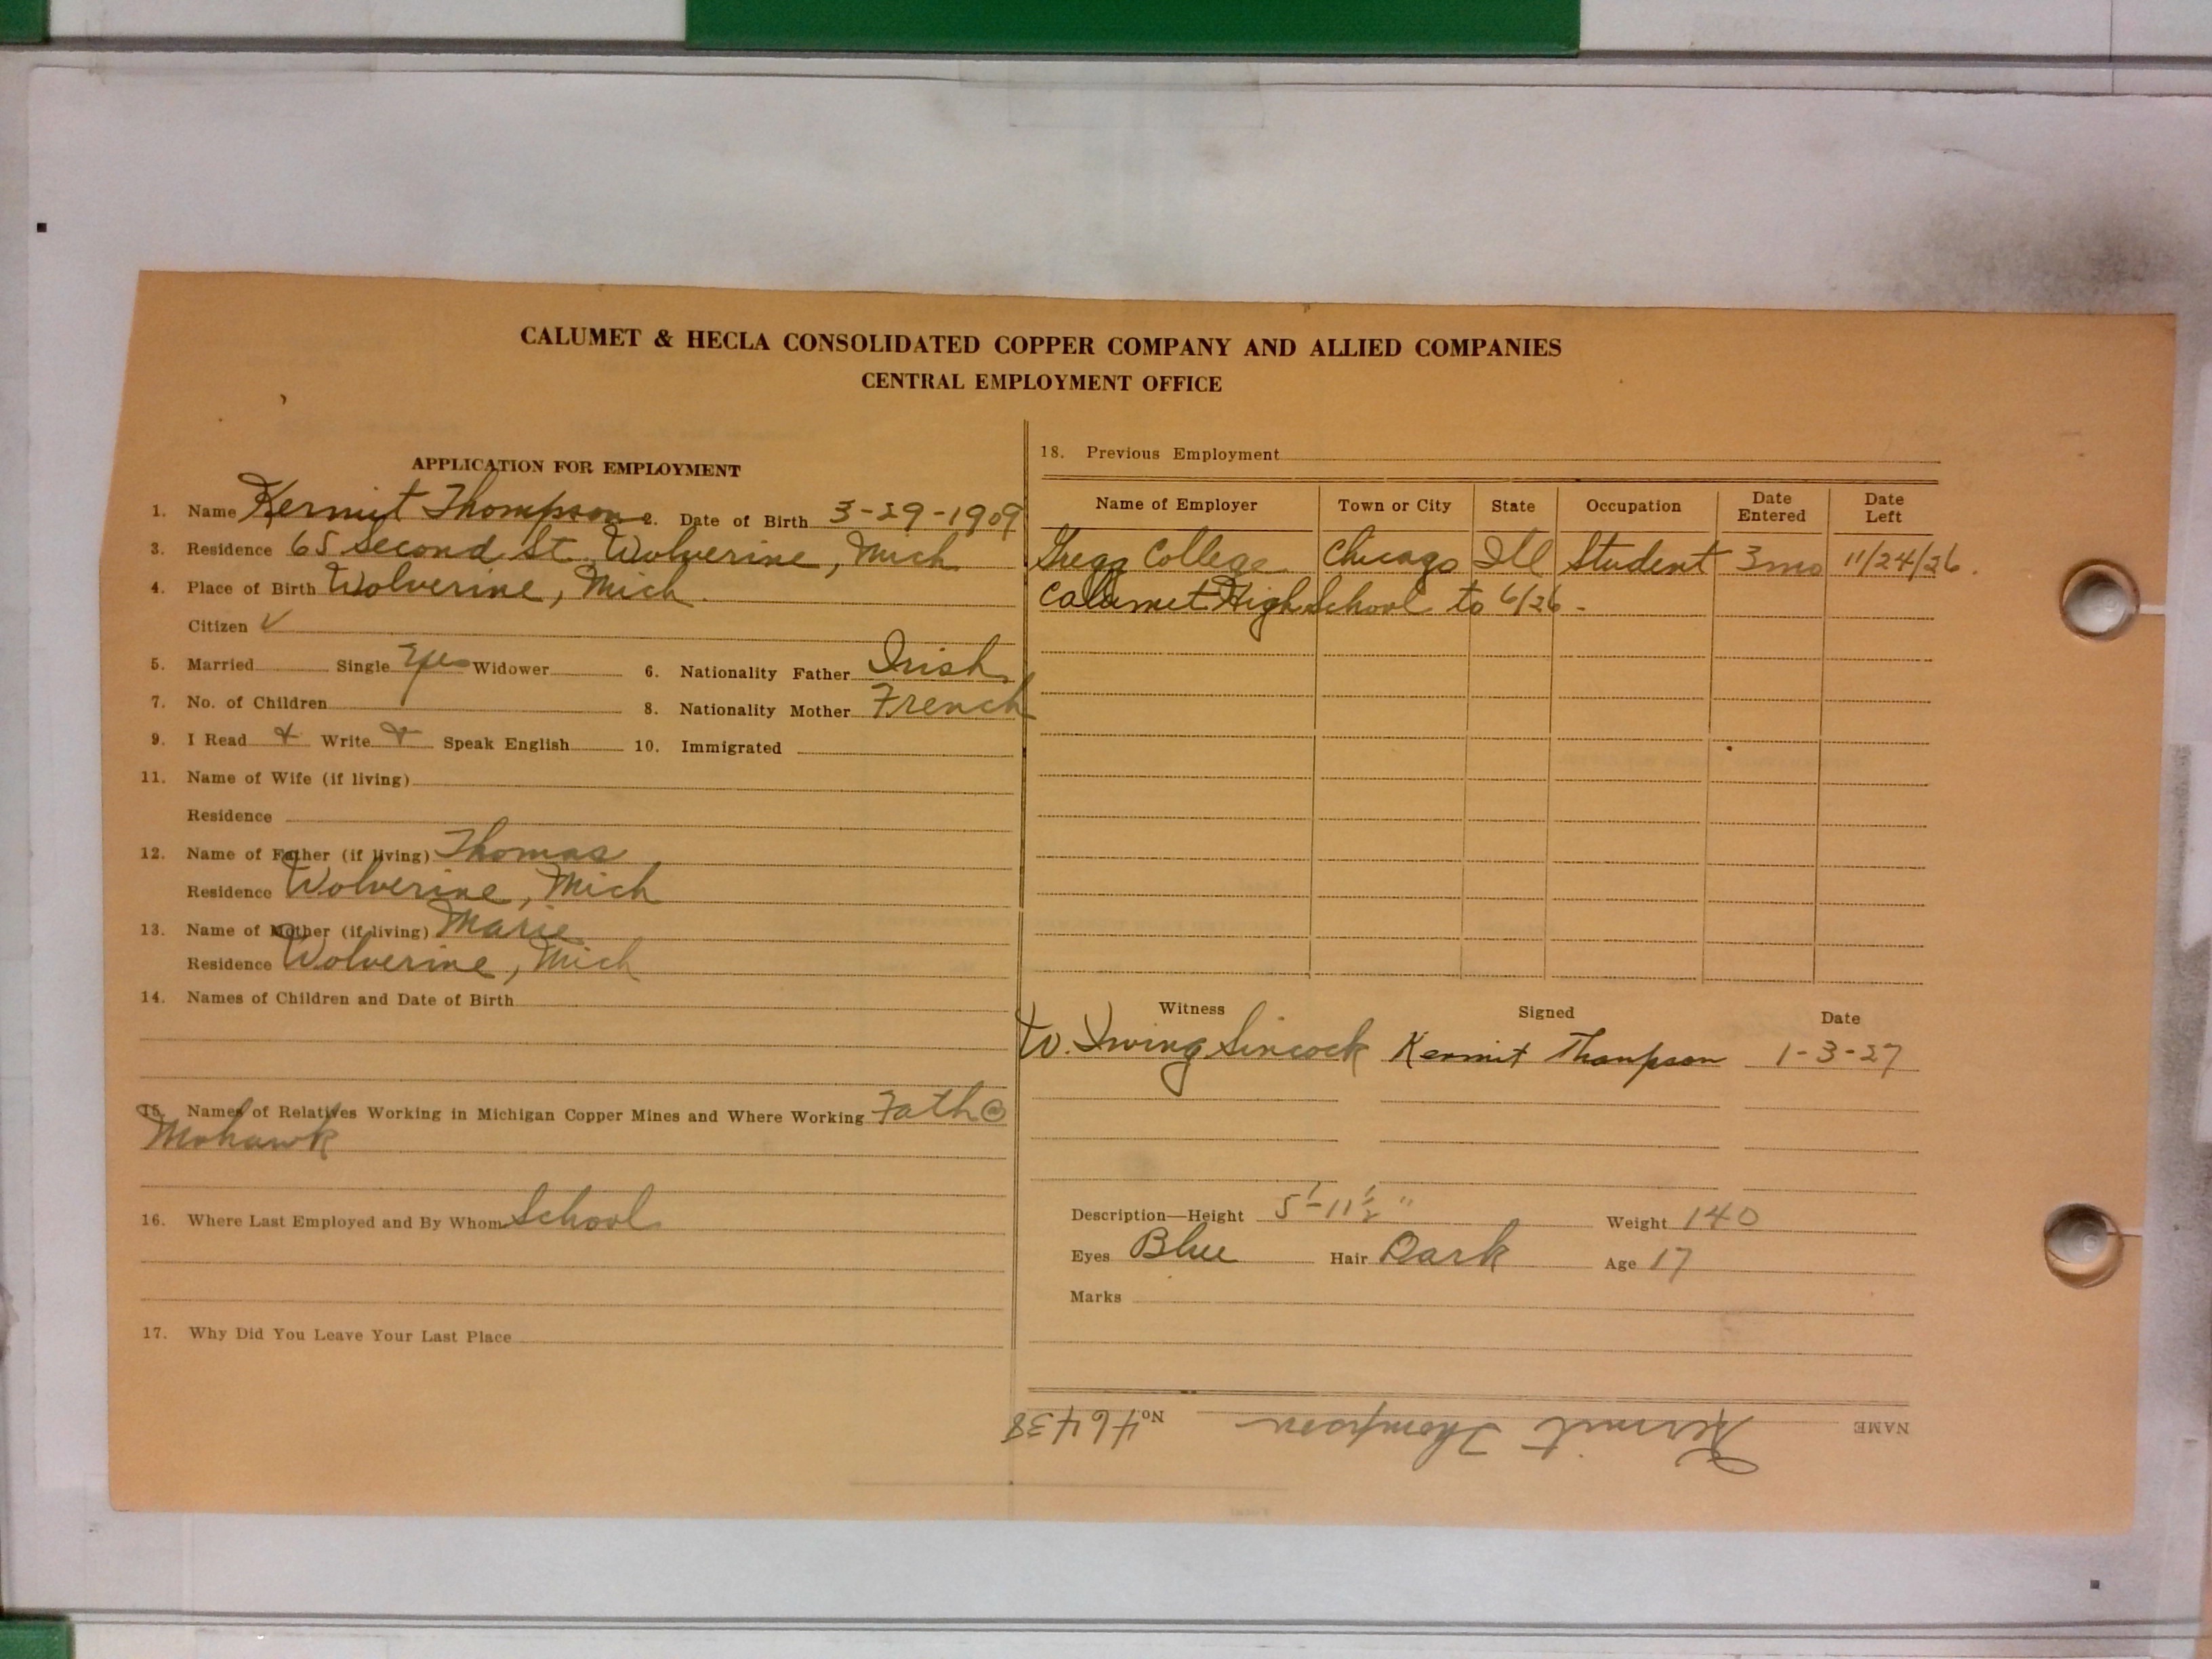 CALUMET & HECLA CONSOLIDATED COPPER COMPANY AND ALLIED COMPANIES
CENTRAL EMPLOYMENT OFFICE
APPLICATION FOR EMPLOYMENT
1. Name Kermit Thompson 2. Date of Birth 3-29-1909
3. Residence 65 Second St. Wolverine, Mich
4. Place of Birth Wolverine, Mich.
Citizen ✓
5. Married Single Yes Widower 6. Nationality Father Irish
7. No. of Children 8. Nationality Mother French
9. I Read Write Speak English 10. Immigrated
11. Name of Wife (if living)
Residence
12. Name of Father (if living) Thomas
Residence Wolverine, Mich
13. Name of Mother (if living) Marie
Residence Wolverine, Mich
14. Names of Children and Date of Birth
15. Names of Relatives Working in Michigan Copper Mines and Where Working Fath @
Mohawk
16. Where Last Employed and By Whom School
17. Why Did You Leave Your Last Place
18. Previous Employment
Name of Employer Town or City State Occupation Date Entered Date Left
Gregg College Chicago Ill Student 3mo 11/24/26.
Calumet High School to 6/26 -
Witness Signed Date
W. Irving Sincock Kermit Thompson 1-3-27
Description—Height 5'-11½" Weight 140
Eyes Blue Hair Dark Age 17
Marks
NAME Kermit Thompson No 46438